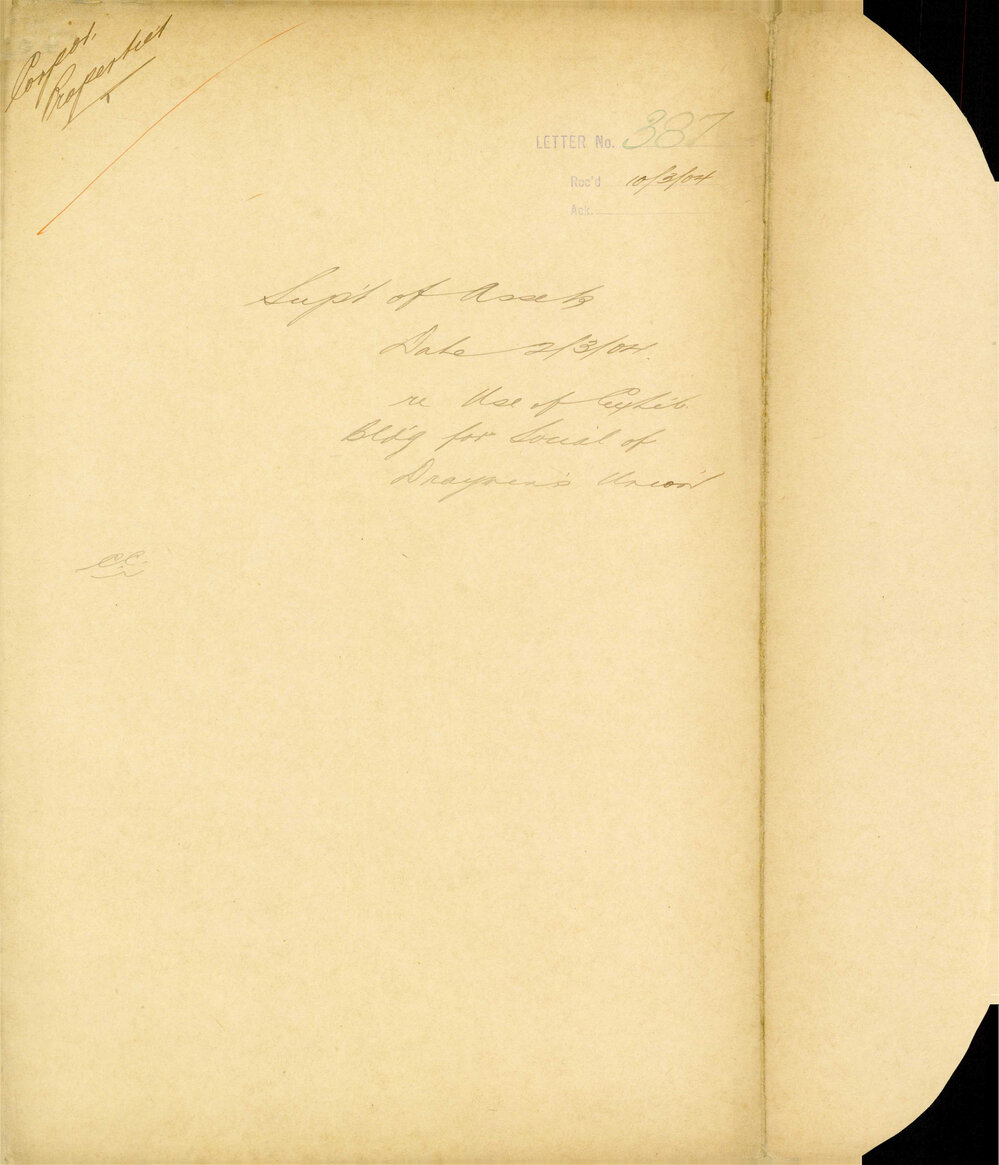 Corpor.
Properties
LETTER No. 387
Rec'd 10/3/04
Ack.
Sup't of Assets
Date 2/3/04.
re Use of Exhib.
Bld'g for Social of
Draymen's Union
C.C.